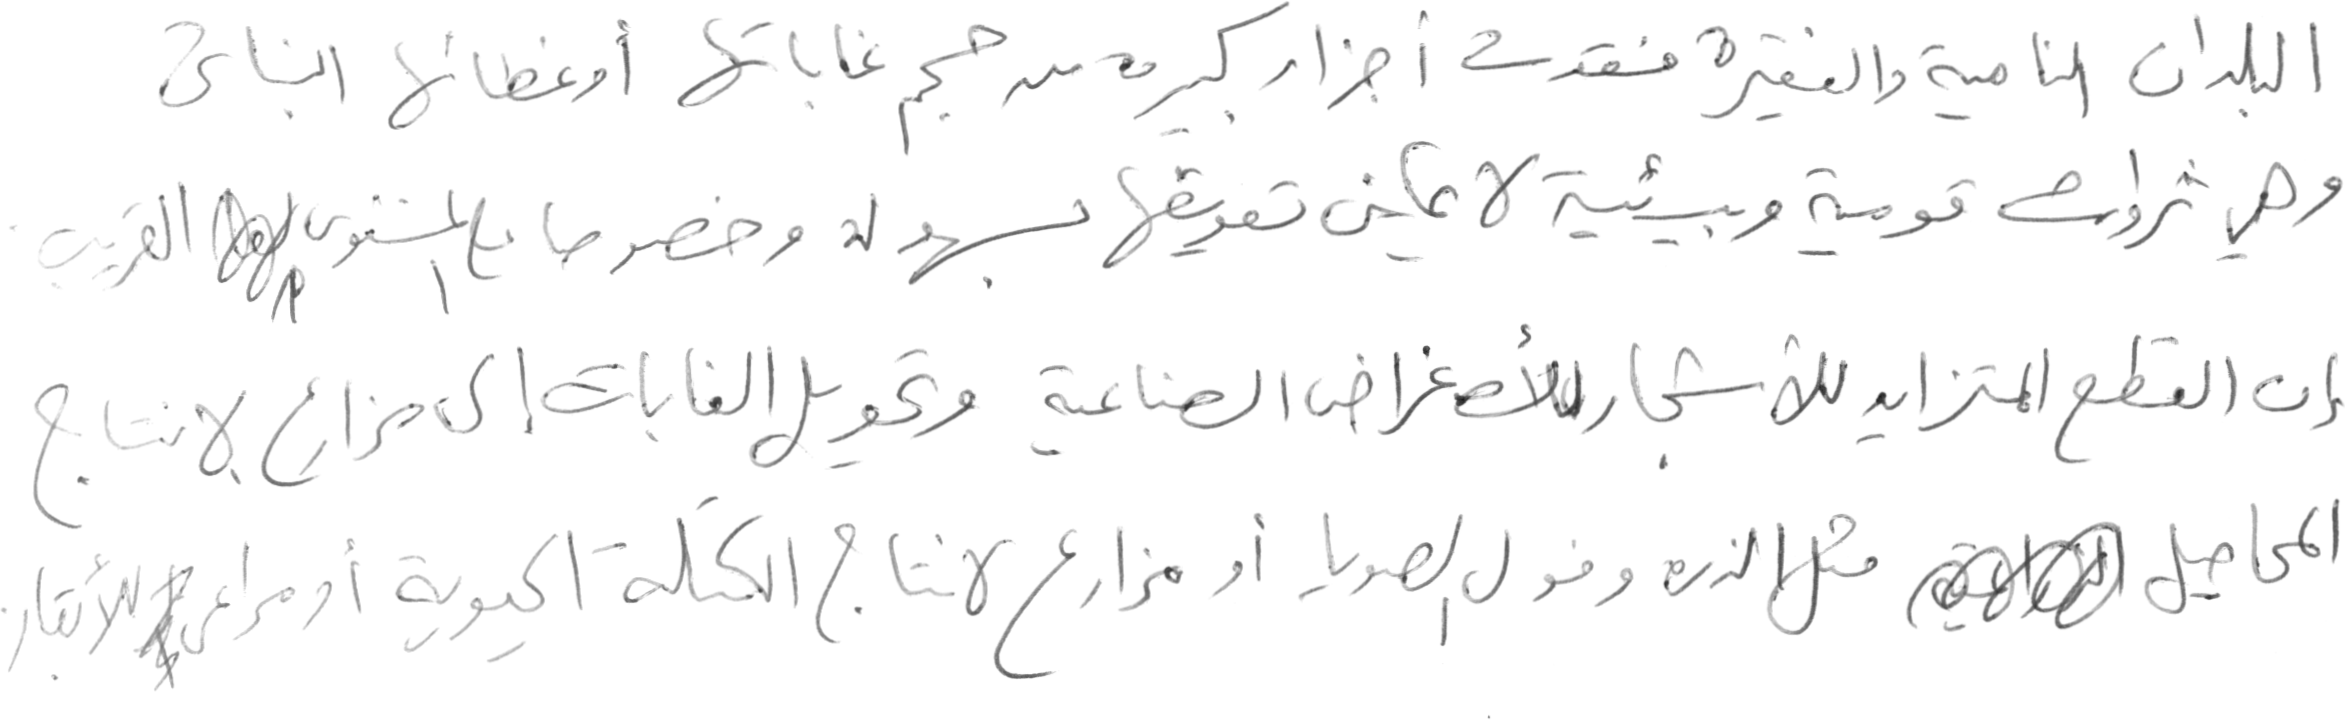 البلدان النامية والفقيرة فقدت أجزاء كبيرة من حجم غاباتها أو غطائها النباتي
وهي ثروات قومية وبيئية لا يمكن تعويضها بسهولة وخصوصا على المستوى القريب
إن القطع المتزايد للأشجار للأغراض الصناعية وتحويل الغابات إلى مزارع لانتاج
المحاصيل مثل الذره وفول الصويا أو مزارع لانتاج الكتلة الحيوية أو مراعى للأبقار